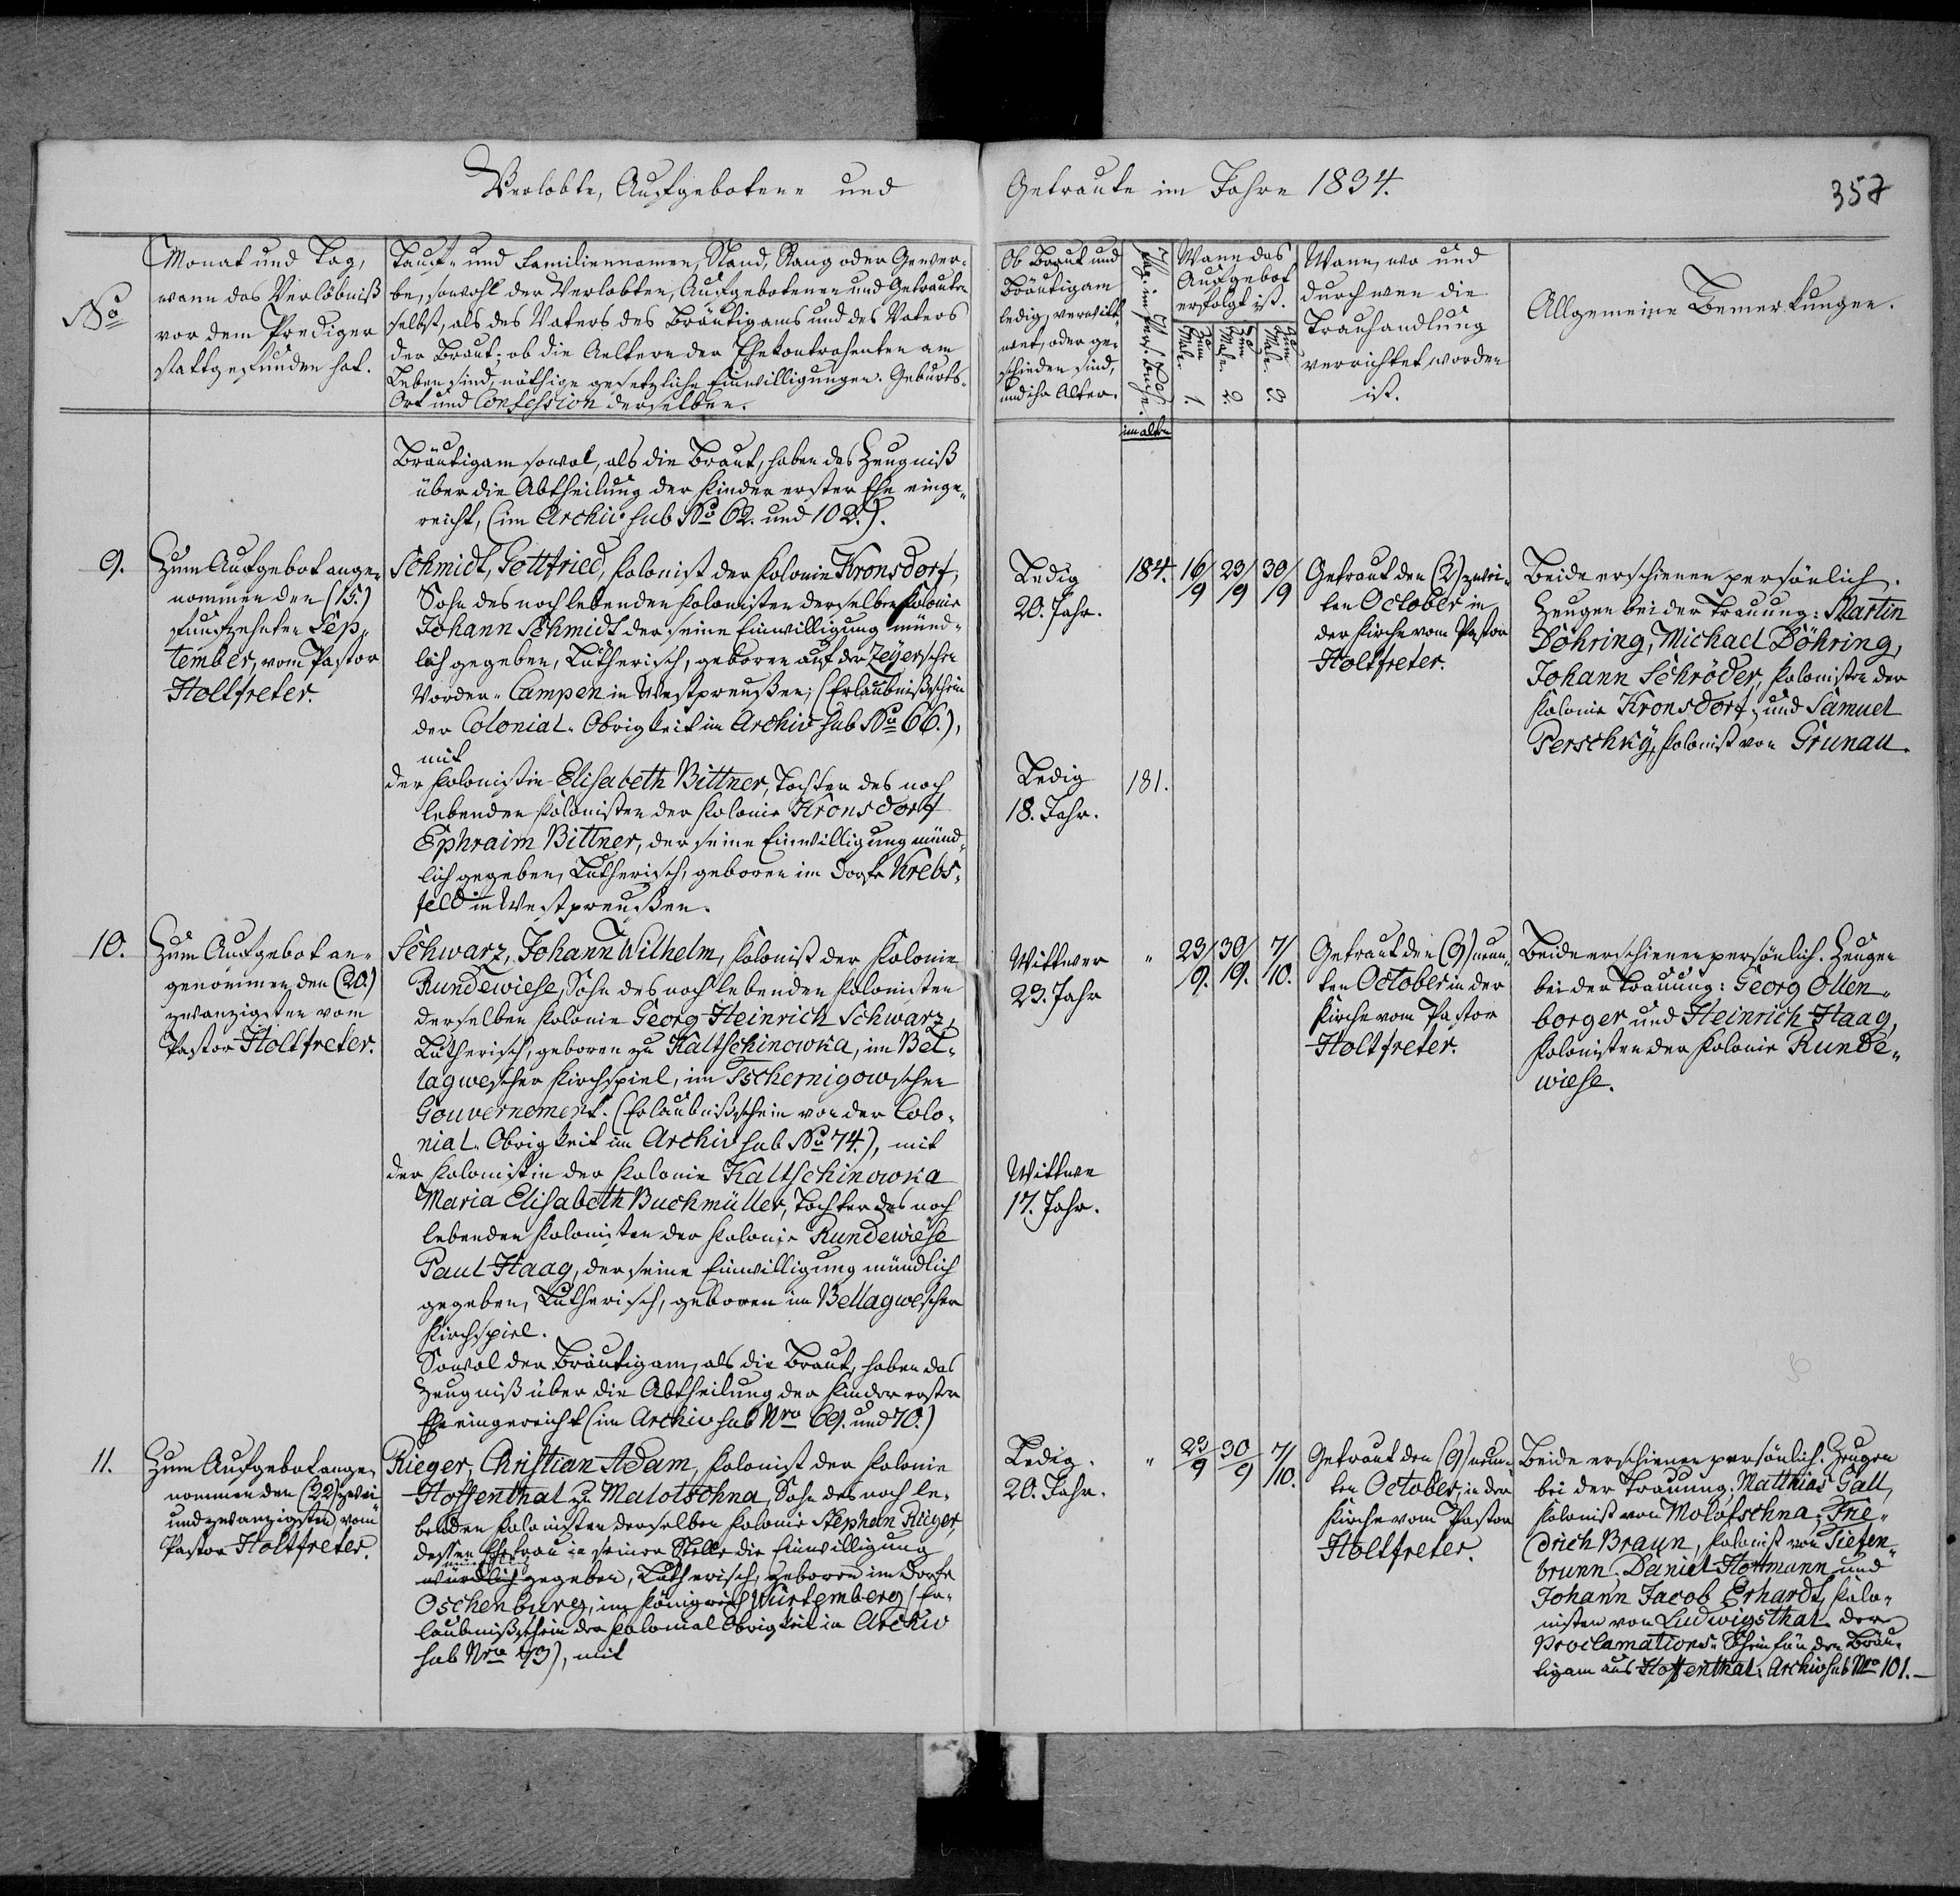 Verlobte, Aufgebotene und
Getraute im Jahre 1834.
357
No
Monat und Tag,
wann das Verlöbniß
vor dem Prediger
stattgefunden hat.
Tauf- und Familiennamen, Stand, Rang oder Gewer-
be, sowohl der Verlobten, Aufgebotenen und Getrauten
selbst, als des Vaters des Bräutigams und des Vaters
der Braut; ob die Aeltern der Ehekontrahenten am
Leben sind, nöthige gesetzliche Einwilligungen. Geburts-
Ort und Confession derselben.
Ob Braut und
Bräutigam
ledig, verwitt-
wet, oder ge-
schieden sind,
und ihr Alter.
Pag. im Pers. Buche.
im alten
Wann das
Aufgebot
erfolgt ist.
Zum 1. Male.
Zum 2. Male.
Zum 3. Male.
Wann, wo und
durch wen die
Trauhandlung
verrichtet worden
ist.
Allgemeine Bemerkungen.
Bräutigam sowol, als die Braut, haben das Zeugniß
über die Abtheilung der Kinder erster Ehe einge-
reicht, (im Archiv sub No 62. und 102.).
9.
Zum Aufgebot ange-
nommen den (15.)
funfzehnten Sep-
tember, vom Pastor
Holtfreter.
Schmidt, Gottfried, Kolonist der Kolonie Kronsdorf,
Sohn des noch lebenden Kolonisten derselben Kolonie
Johann Schmidt der seine Einwilligung münd-
lich gegeben, Lutherisch, geboren auf der Zeyerschen
Vorder-Campen in Westpreußen; (Erlaubnißschein
der Colonial-Obrigkeit im Archiv sub No 66.),
mit
der Kolonistin Elisabeth Bittner, Tochter des noch
lebenden Kolonisten der Kolonie Kronsdorf
Ephraim Bittner, der seine Einwilligung münd-
lich gegeben, Lutherisch, geboren im Dorfe Krebs-
feld in Westpreußen.
Ledig
20. Jahr.
184.
16/9
23/9
30/9
Getraut den (2) zwei-
ten October in
der Kirche vom Pastor
Holtfreter.
Beide erschienen persönlich.
Zeugen bei der Trauung: Martin
Döhring, Michael Döhring,
Johann Schröder, Kolonisten der
Kolonie Kronsdorf, und Samuel
Perschky, Kolonist von Grunau.
Ledig
18. Jahr.
181.
10.
Zum Aufgebot an-
genommen den (20.)
zwanzigsten vom
Pastor Holtfreter.
Schwarz, Johann Wilhelm, Kolonist der Kolonie
Rundewiese, Sohn des noch lebenden Kolonisten
derselben Kolonie Georg Heinrich Schwarz,
Lutherisch, geboren zu Kaltschinowka, im Bel-
lagweschen Kirchspiel, im Tschernigowschen
Gouvernement. (Erlaubnißschein von der Colo-
nial-Obrigkeit im Archiv sub No 74.), mit
der Kolonistin der Kolonie Kaltschinowka
Maria Elisabeth Buchmüller, Tochter des noch
lebenden Kolonisten der Kolonie Rundewiese
Paul Haag, der seine Einwilligung mündlich
gegeben, Lutherisch, geboren im Bellagweschen
Kirchspiel.
Sowol der Bräutigam, als die Braut, haben das
Zeugniß über die Abtheilung der Kinder erster
Ehe eingereicht (im Archiv sub Nro 69. und 70.)
Wittwer
23. Jahr
"
23/9.
30/9.
7/10.
Getraut den (9) neun-
ten October in der
Kirche vom Pastor
Holtfreter.
Beide erschienen persönlich. Zeugen
bei der Trauung: Georg Ollen-
borger und Heinrich Haag,
Kolonisten der Kolonie Runde-
wiese.
Wittwe
17. Jahr.
11.
Zum Aufgebot ange-
nommen den (22) zwei
und zwanzigsten, vom
Pastor Holtfreter.
Rieger, Christian Adam, Kolonist der Kolonie
Hoffenthal zu Malotschna, Sohn des noch le-
benden Kolonisten derselben Kolonie Stephan Rieger,
dessen Ehefrau in seiner Stelle die Einwilligung
mündlich gegeben, Lutherisch, geboren im Dorfe
Oschenburg, im Königreich Würtemberg (Er-
laubnißschein der Kolonial Obrigkeit in Archiv
sub Nro 73), mit
Ledig.
20. Jahr.
"
23/9
30/9
7/10.
Getraut den (9) neun-
ten October, in der
Kirche vom Pastor
Holtfreter.
Beide erschienen persönlich. Zeugen
bei der Trauung: Matthias Gall,
Kolonist von Molotschna; Frie-
drich Braun, Kolonist von Tiefen-
brunn. Daniel Hottmann und
Johann Jacob Erhardt, Kolo-
nisten von Ludwigsthal. der
Proclamations-Schein für den Bräu-
tigam aus Hoffenthal: Archiv sub No 101.—